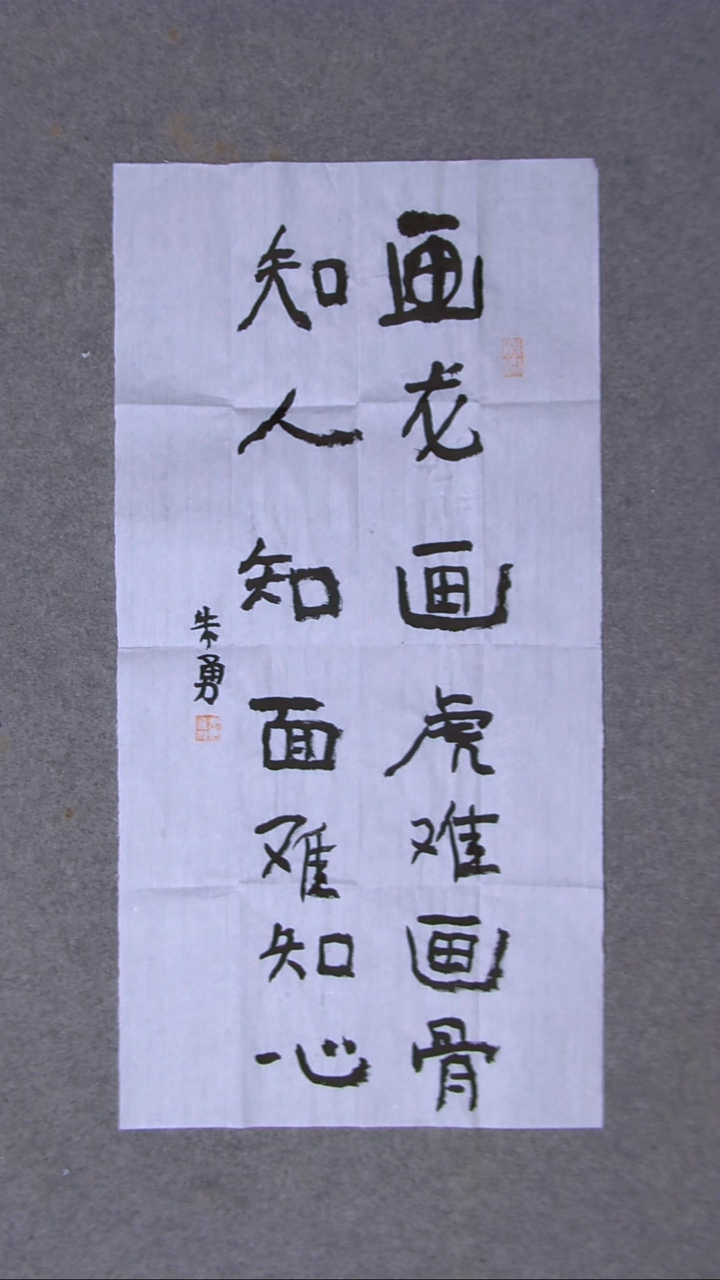 画龙画虎难画骨
知人知面难知心
朱勇